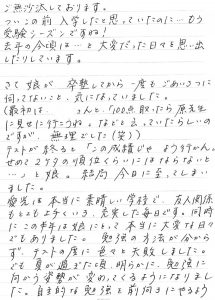 ご無沙汰しております。
ついこの前 入学したと思っていたのに…もう
受験シーズンですね!
去年の今頃は…と 大変だった日々を思い出
したりしています。
さて 娘が 卒塾してから一度もごあいさつに
伺ってないこと、気になっていました。
(最初は くんと「100点取ったら原先生
に見せに行こうね。」などと言っていたらしいの
ですが、無理でした(笑))
テストが終ると「この成績じゃ よう行かん。
せめて2ケタの順位くらいにはならないと
…」と娘。結局 今日に至ってしまい
ました。
愛光は 本当に素晴しい学校で、友人関係
もとってもよくいき、充実した毎日です。同時
にこの半年は娘にとって 本当に大変な日々
でもありました。勉強の方法が分から
ず、テストの度に色々と失敗しました。
でも夏が過ぎた頃、明らかに、勉強に
向かう姿勢が変わってくるようになりまし
た。自主的な勉強を前向きにやるよう